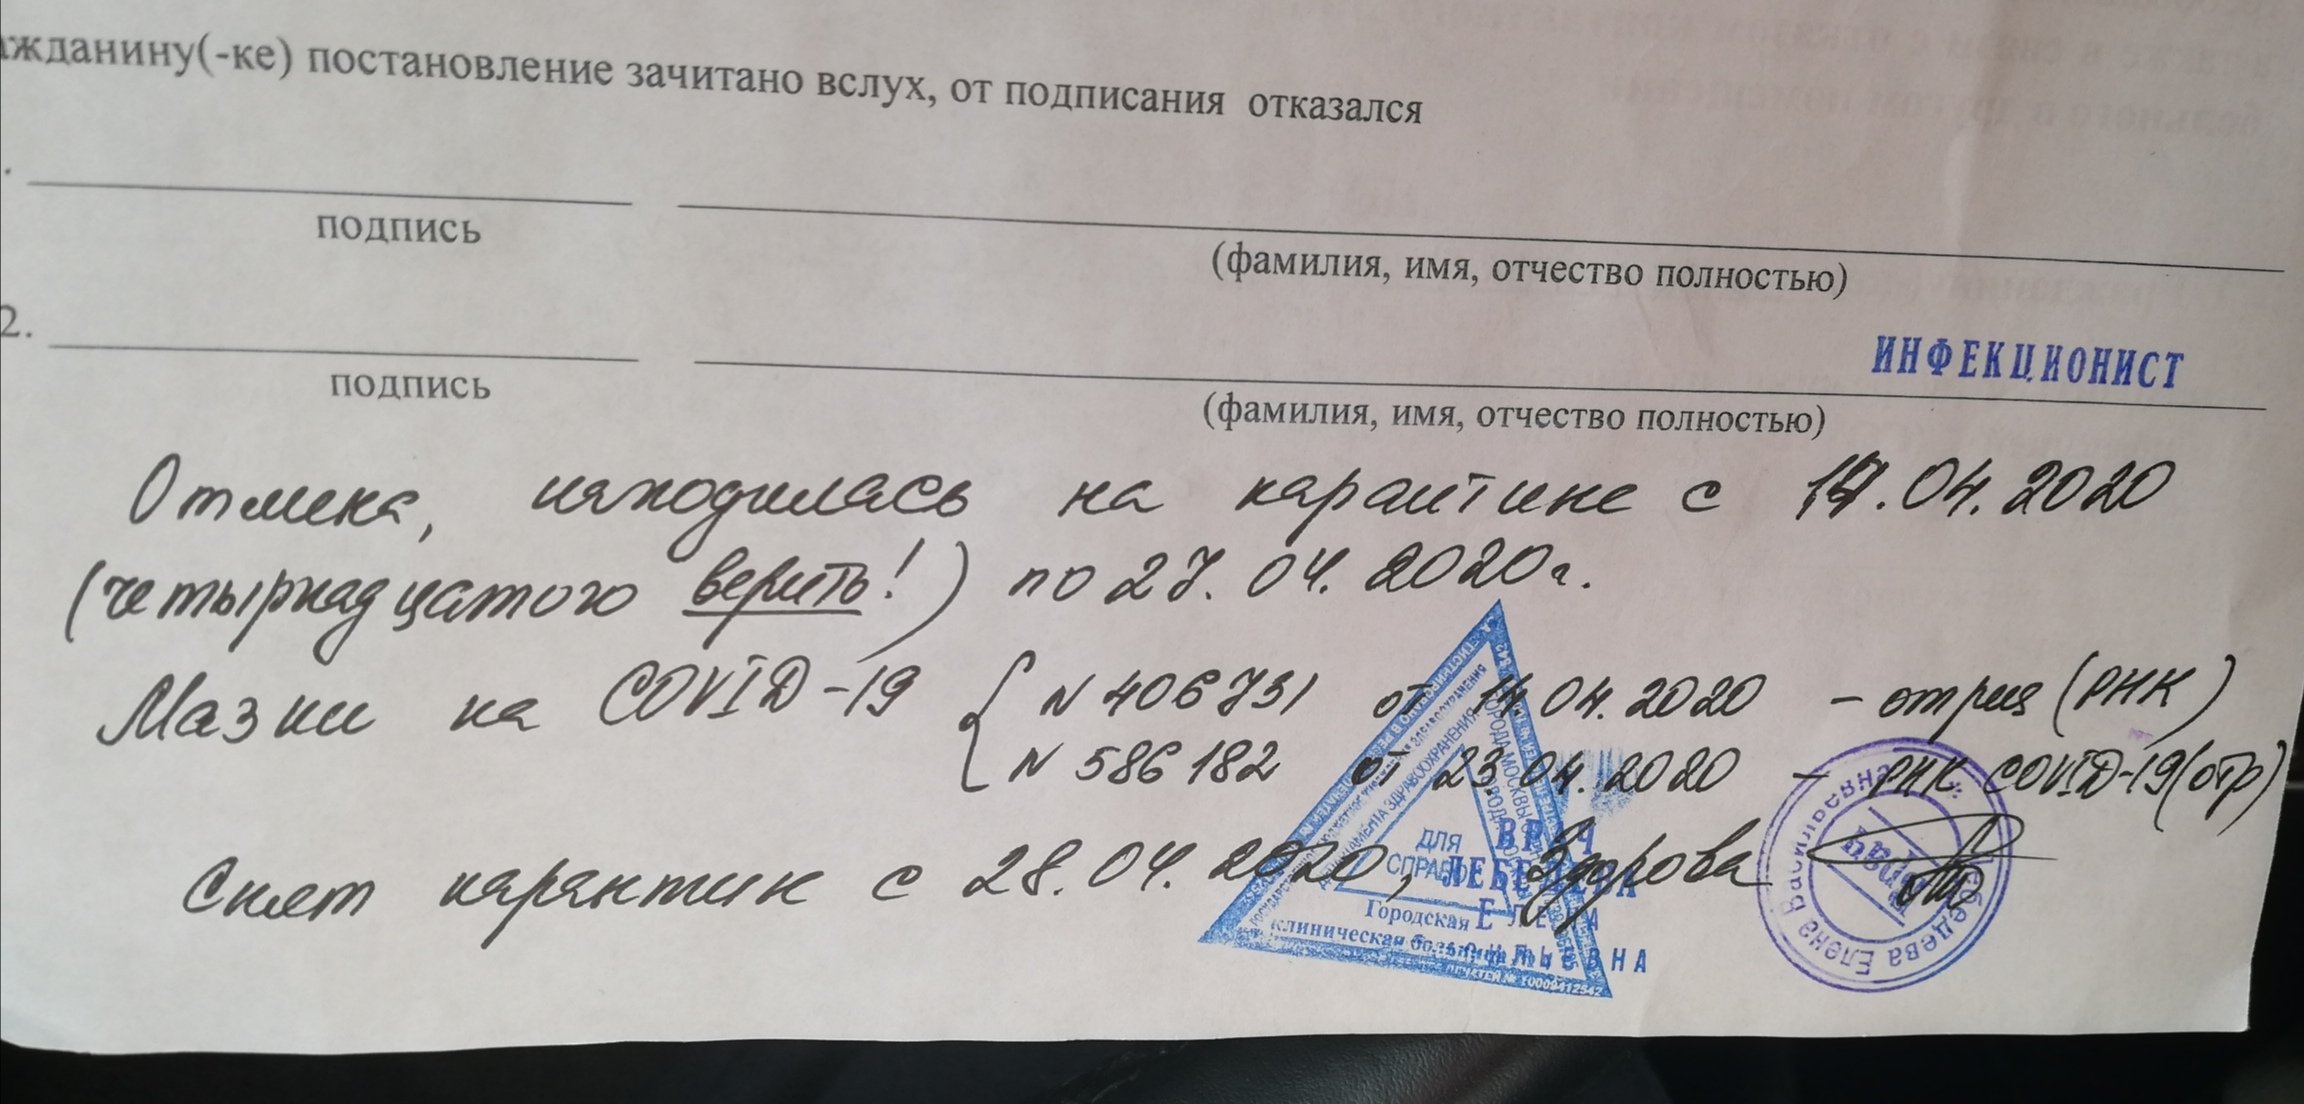 ажданину(-ке) постановление зачитано вслух, от подписания отказался
подпись
(фамилия, имя, отчество полностью)
2.
ИНФЕКЦИОНИСТ
подпись
(фамилия, имя, отчество полностью)
находилась на карантине с 14.04.2020
(четырнадцатого верить!) по 27.04.2020г.
Мазки на COVID-19 { N 406731 от 14.04.2020 - отриц (РНК)
N 586182 от 23.04.2020 - РНК COVID-19(отр)
Снят карантин с 28.04.2020, Здорова
ДЛЯ
СПРАВОК
Городская
клиническая больница
ВРАЧ
ЛЕБЕДЕВА
ЕЛЕНА
ВАСИЛЬЕВНА
Лебедева Елена Васильевна
врач